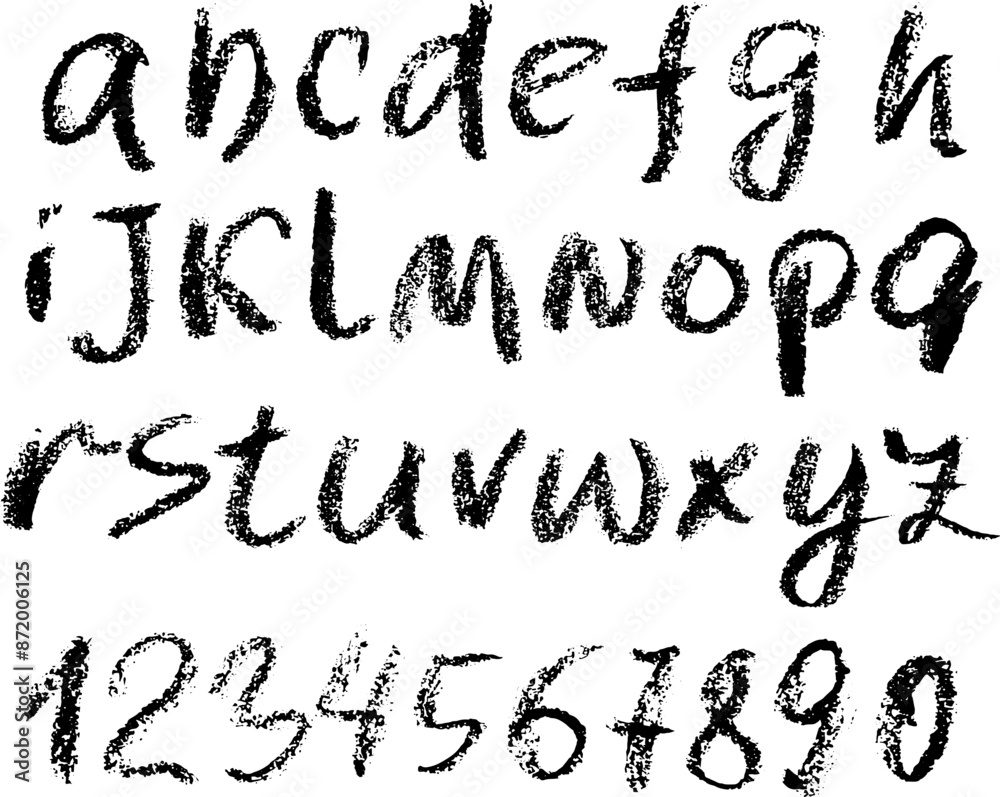 a b c d e f g h
i J K l M N O p q
r s t u v w x y z
1 2 3 4 5 6 7 8 9 0
Adobe Stock | #872006125